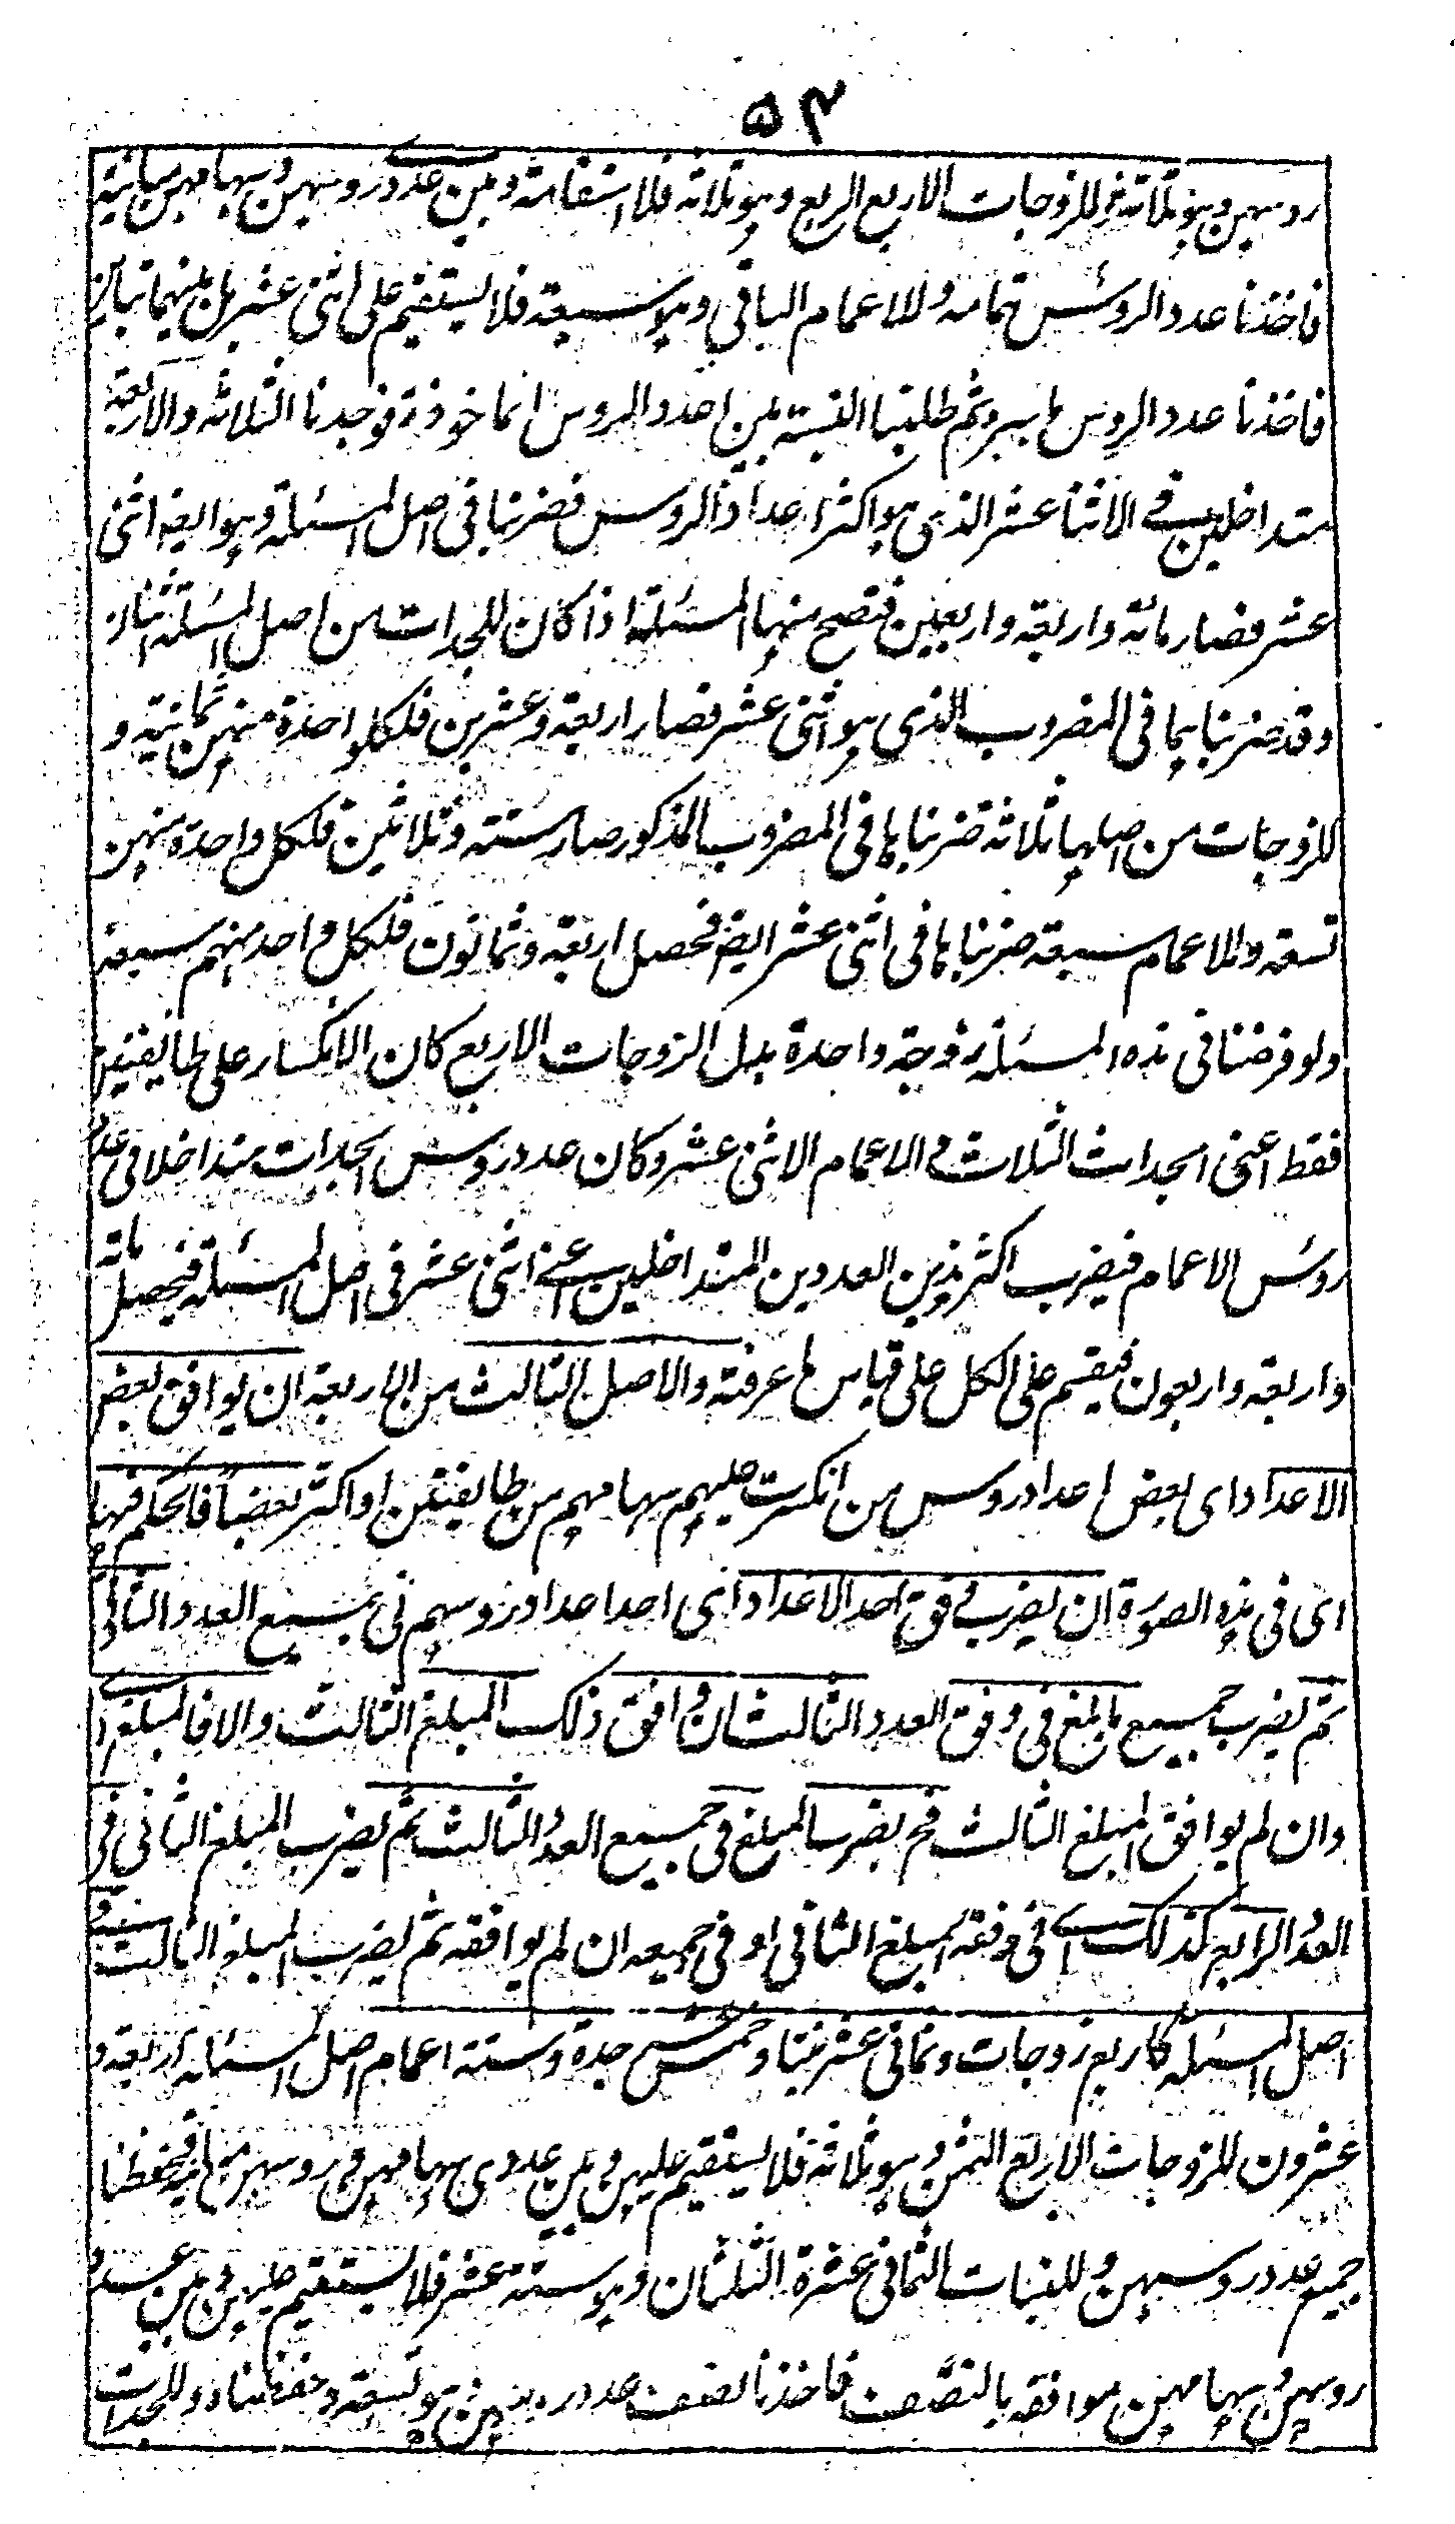 ۵۳
روسهن وهو ثلاثة ثم للزوجات الاربع الربع وهو ثلاثة فلا استقامة وبين عددے روسهن وسهامهن مباينة
فاخذنا عدد الروس تمامه وللاعمام الباقى وهو سبعة فلا يستقيم على اثنى عشر بل بينهما تباين
فاخذنا عدد الروس باسره ثم طلبنا النسبة بين اعداد الروس الماخوذة فوجدنا الثلاثة والاربعة
متداخلين فے الاثنا عشر الذى هو اكثر اعداد الروس فضربنا فى اصل المسئلة وهو ايضا اثنى
عشر فصار مائة واربعة واربعين فتصح منها المسئلة اذا كان للجدات من اصل المسئلة اثنان
وقد ضربنا هما فى المضروب الذى هو اثنى عشر فصار اربعة وعشرين فلكل واحدة منهن ثمانية و
للزوجات من اصلها ثلاثة ضربنا ها فى المضروب المذكور صار ستة وثلاثين فلكل واحدة منهن
تسعة وللاعمام سبعة ضربنا ها فى اثنى عشر ايضا فحصل اربعة وثمانون فلكل واحد منهم سبعة
ولو فرضنا فى هذه المسئلة زوجة واحدة بدل الزوجات الاربع كان الانكسار على طايفتين
فقط اعنى الجدات الثلاث و الاعمام الاثنى عشر وكان عدد روس الجدات متداخلا فى عدد
روس الاعمام فيضرب اكثر هذين العددين المتداخلين اعنے اثنى عشر فى اصل المسئلة فيحصل مائة
واربعة واربعون فيقسم على الكل على قياس ما عرفته والاصل الثالث من الاربعة ان يوافق بعض
الاعداد اى بعض اعداد روس من انكسرت عليهم سهامهم من طايفتين او اكثر بعضاً فالحكم فيها
اى فى هذه الصورة ان يضرب وفق احد الاعداد اى احد اعداد روسهم فى جميع العدد الثانى
ثم يضرب جميع ما بلغ فى وفق العدد الثالث ان وافق ذلك المبلغ الثالث والا فالمبلغ اے
وان لم يوافق المبلغ الثالث فح يضرب المبلغ فى جميع العدد الثالث ثم يضرب المبلغ الثانى فى
العدد الرابع كذلك اے فى وفقه المبلغ الثانى او فى جميعه ان لم يوافقه ثم يضرب المبلغ الثالث فى
اصل المسئلة كاربع زوجات وثمانى عشر بنتا وخمس عشر جدة وستة اعمام اصل المسئلة اربعة و
عشرون للزوجات الاربع الثمن وهو ثلاثة فلا يستقيم عليهن وبين عددى سهامهن و روسهن مباينة فحفظنا
جميع عدد روسهن و للبنات الثمانى عشرة الثلثان وهو ستة عشر فلا يستقيم عليهن وبين عدد
روسهن وسهامهن موافقة بالنصف فاخذنا نصف عدد روسهن وهو تسعة وحفظناه وللجدات